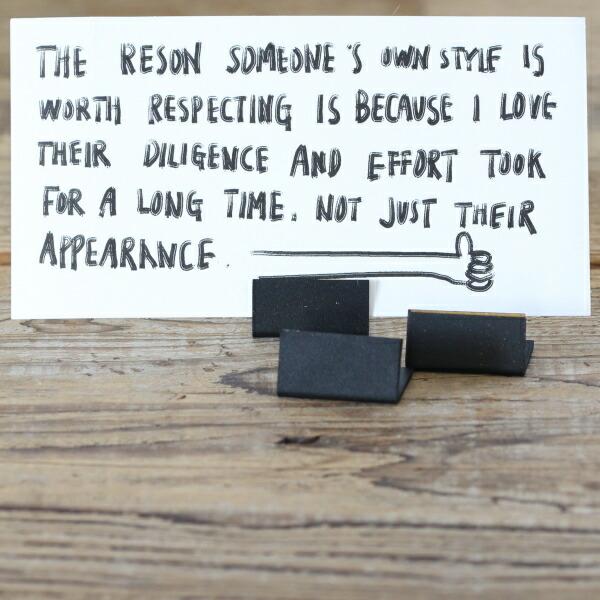 THE RESON SOMEONE'S OWN STYLE IS
WORTH RESPECTING IS BECAUSE I LOVE
THEIR DILIGENCE AND EFFORT TOOK
FOR A LONG TIME. NOT JUST THEIR
APPEARANCE.